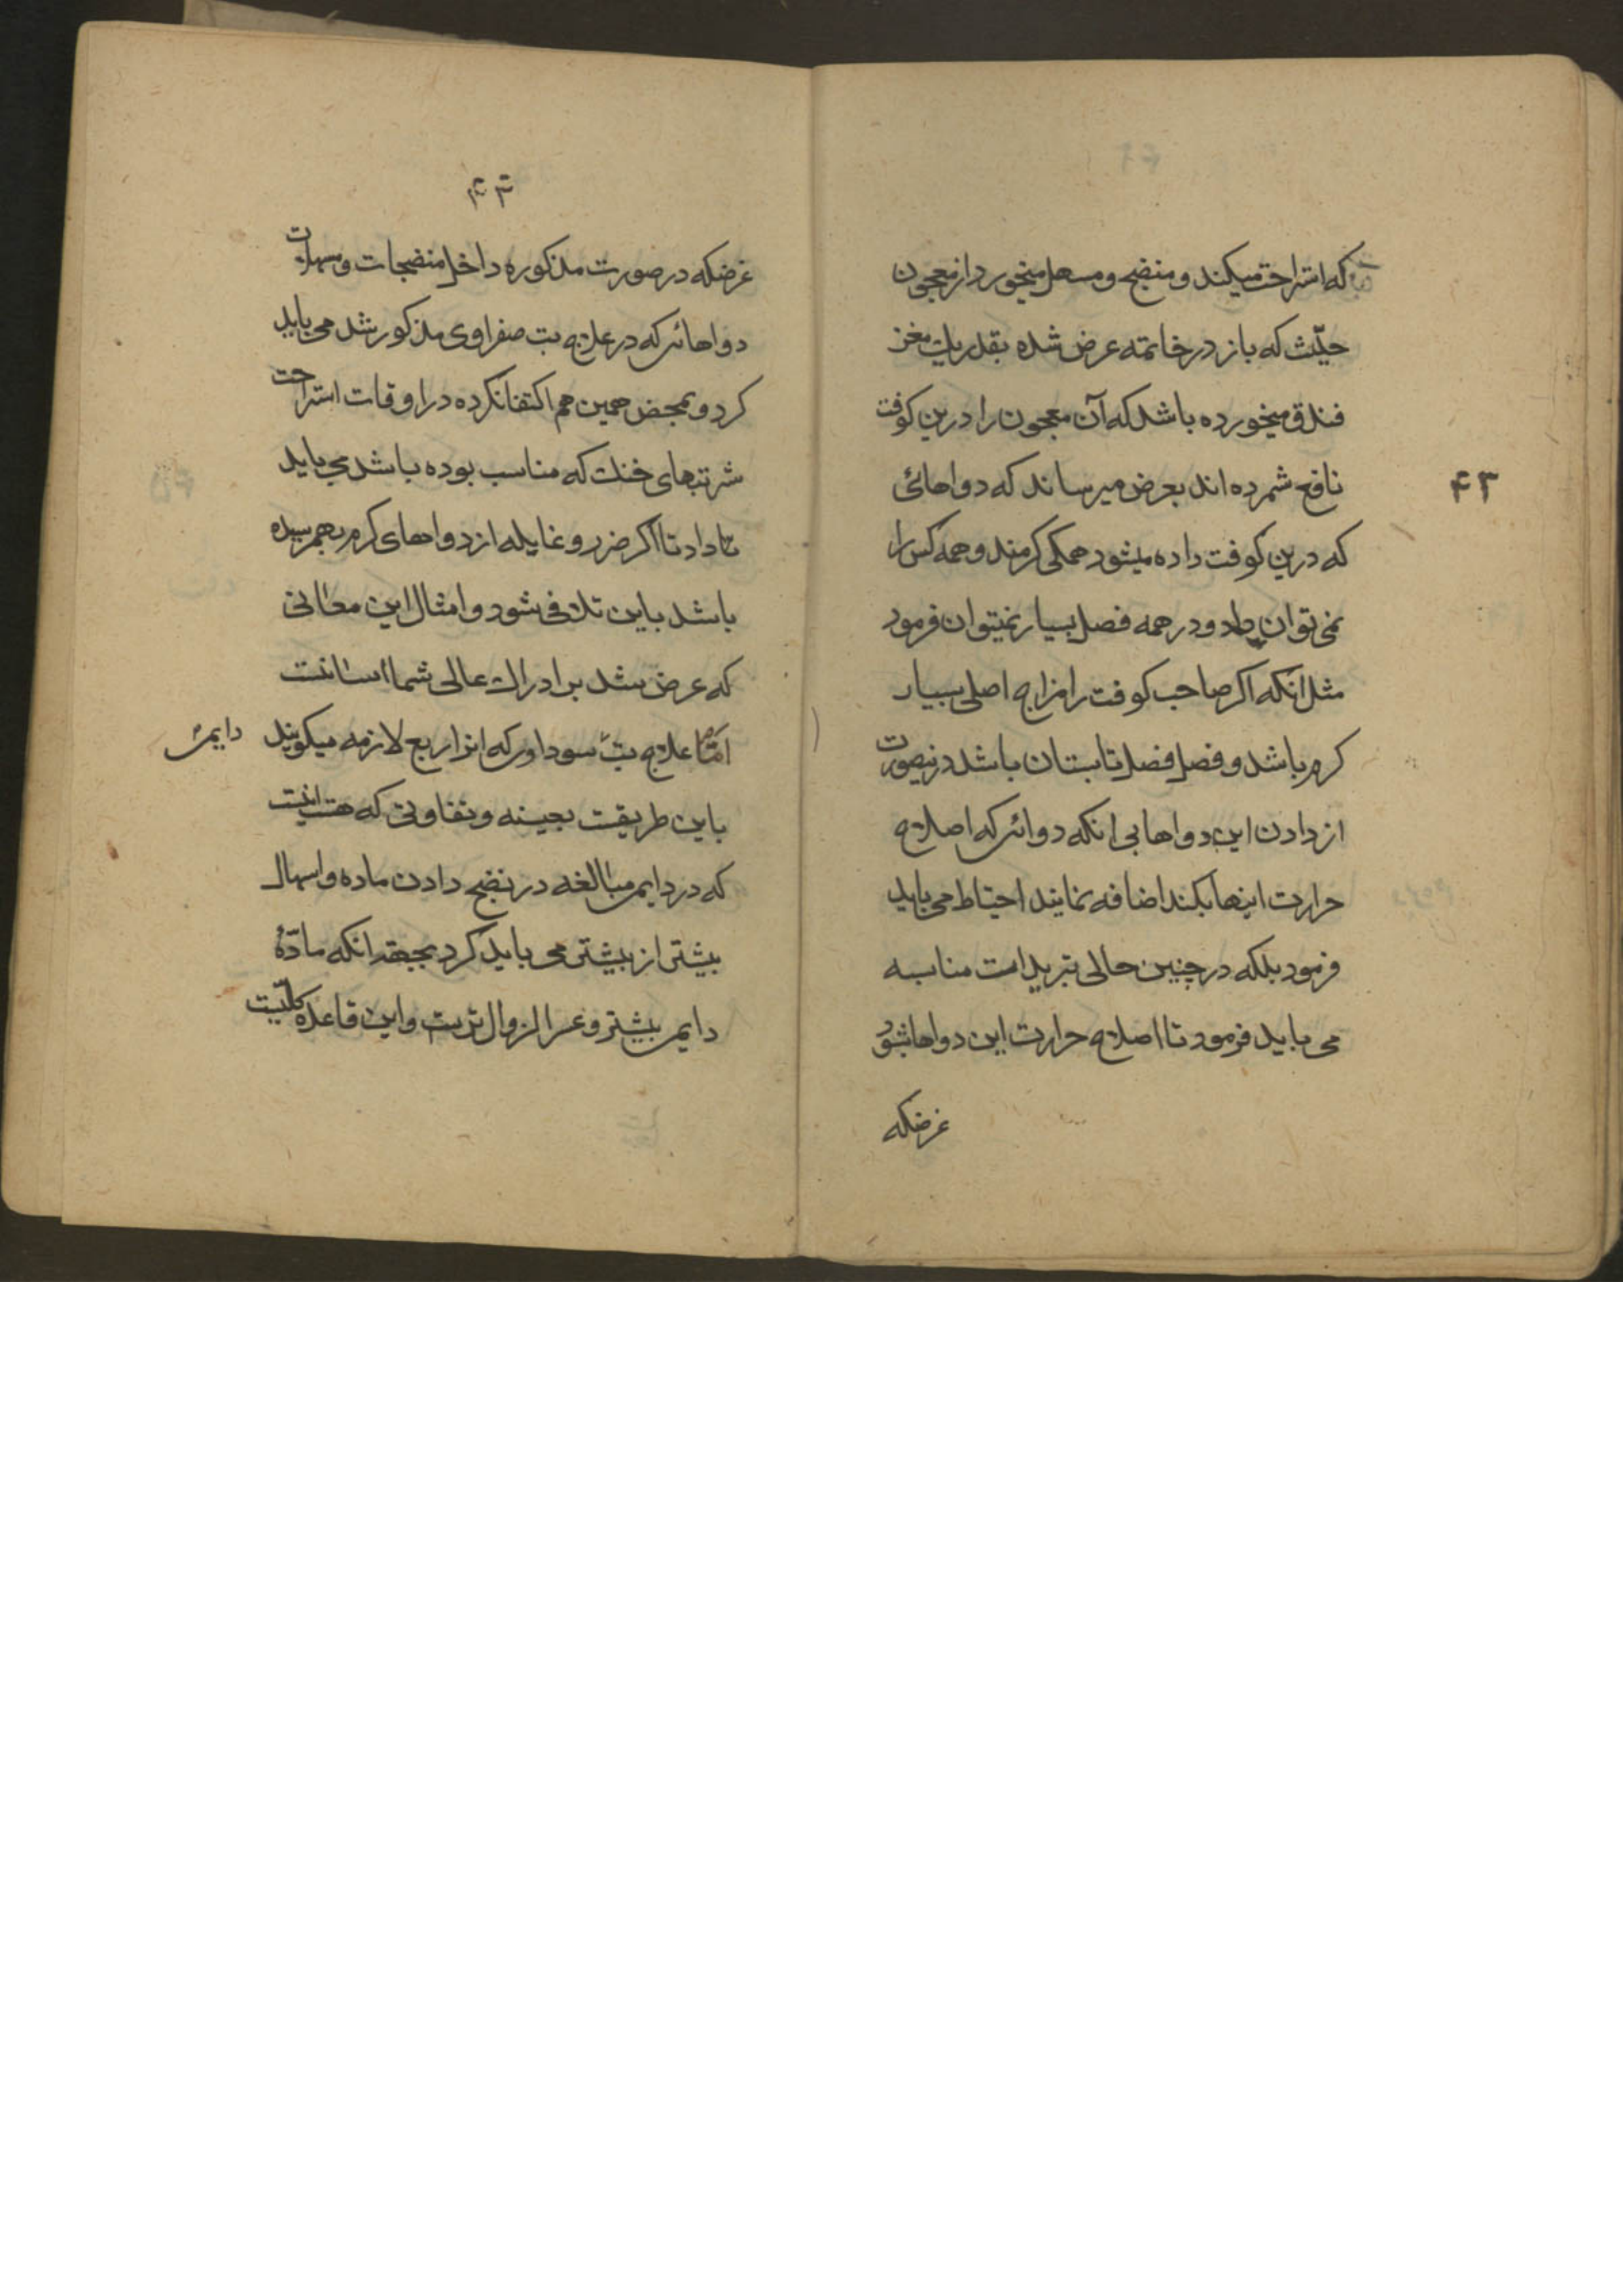 که استراحت میکند و منضج و مسهل میخورد از معجون
حلتیت که باز در خاتمه عرض شده بقدر یک مغز
فندق میخورده باشد که آن معجون را درین کوفت
نافع شمرده اند بعرض میرساند که دواهائی
۴۳
که درین کوفت داده میشود همکی کرمند و همه کس را
نمی توان داد و در همه فصل بسیار نمیتوان فرمود
مثل انکه اکر صاحب کوفت را مزاج اصلی بسیار
کرم باشد و فصل فصل تابستان باشد درینصورت
از دادن این دواها بی انکه دوائی که اصلاح
حرارت اینها بکند اضافه نمایند احتیاط می باید
فرمود بلکه در چنین حالی تبریدات مناسبه
می باید فرمود تا اصلاح حرارت این دواها شود
غرضکه
۴۳
غرضکه در صورت مذکوره داخل منضجات و مسهلات
دواهائی که در علاج تب صفراوی مذکور شد می باید
کرد و بمحض همین هم اکتفا نکرده در اوقات استراحت
شربتهای خنک که مناسب بوده باشد می باید
داد تا اکر ضرر و غایله از دواهای کرم بهم رسیده
باشد باین تلافی شود و امثال این معانی
که عرض شد بر ادراک عالی شما اسانست
امّا علاج تب سوداوی که انرا ربع لازمه میکویند
دایمی
باین طریقست بعینه و تفاوتی که هست اینست
که در دایمی مبالغه در نضج دادن ماده و اسهال
بیشتر از بیشتر می باید کرد بجهة انکه مادّهٔ
دایمی بیشتر و عسرالزوال ترست و این قاعده کلّیست